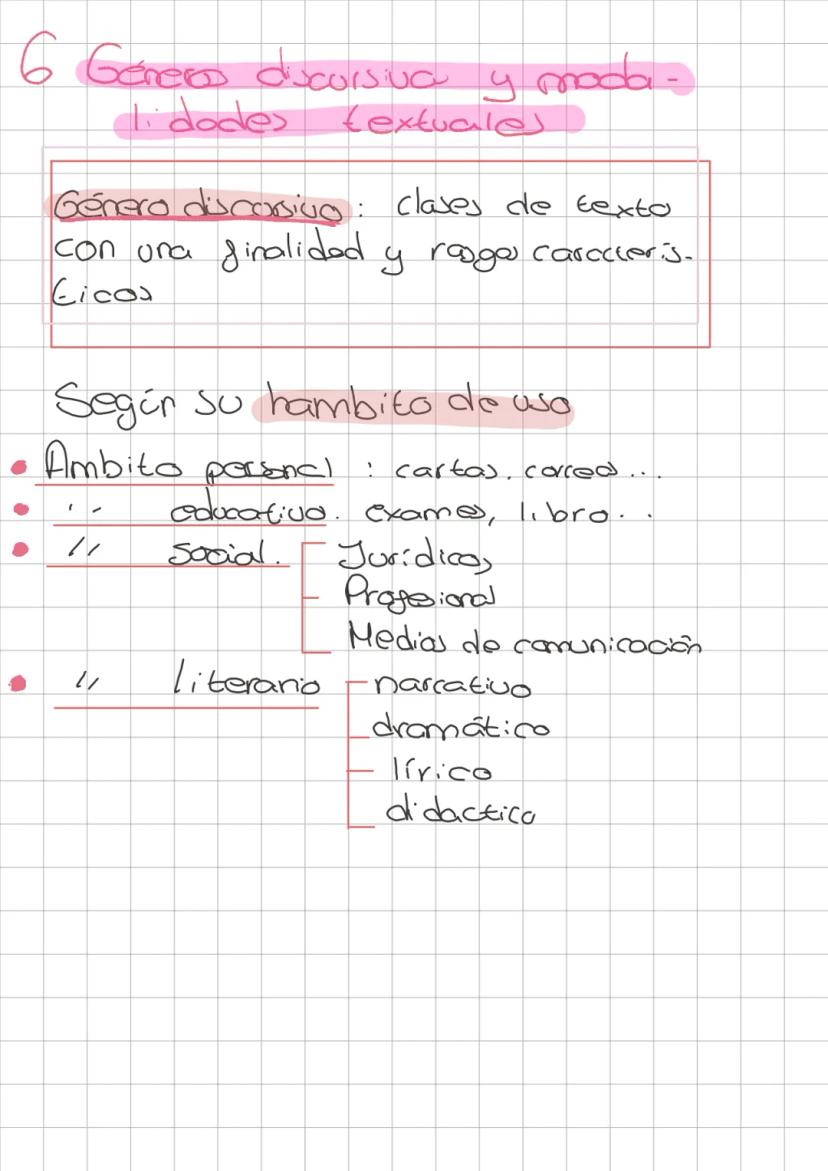 6 Géneros discursivo y moda-
lidades textuales
Género discursivo: clases de texto
con una finalidad y rasgos caracterís-
ticos
Según su hambito de uso
• Ambito personal : cartas, correos...
• '' educativo. exames, libro...
• '' social. Jurídicos
Profesional
Medios de comunicación
• '' literario narrativo
dramático
lírico
didactico